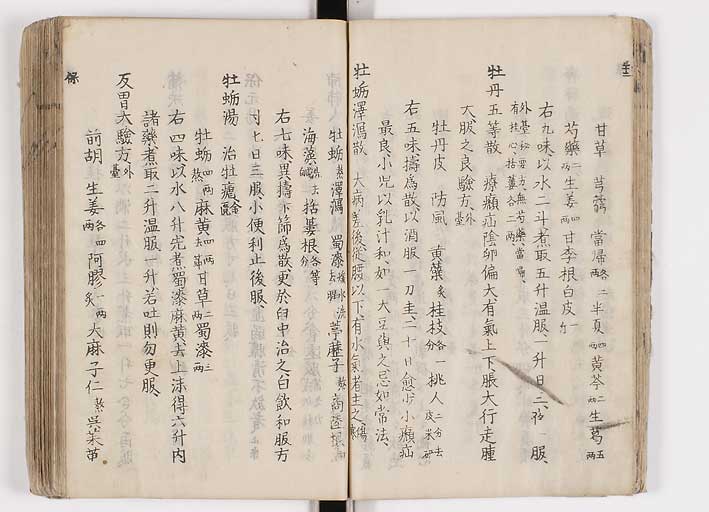 甘草 芎藭 當帰各二両 半夏四両 黄芩二両 生葛五両
芍藥二両 生姜四両 甘李根白皮一斤
右九味以水二斗煮取五升温服一升日三夜一服
外臺秘要方無芍藥當帰有桂心括蔞各二両
牡丹五等散 療㿗疝陰卵偏大有氣上下脹大行走腫
大服之良験方外臺
牡丹皮 防風 黄蘗炙 桂枝各一分 桃人二分去皮尖研
右五味擣為散以酒服一刀圭二十日愈少小㿗疝
最良小児以乳汁和如一大豆與之忌如常法
牡蛎澤瀉散 大病差後從腰以下有水氣者主之傷寒
牡蛎熬 澤瀉 蜀漆煖水洗去腥 葶藶子熬 商陸根熬
海藻洗去鹹 括蔞根各等分
右七味異擣下篩為散更於臼中治之白飲和服方
寸匕日三服小便利止後服
牡蛎湯 治牡瘧金匱
牡蛎四両熬 麻黄四両去節 甘草二両 蜀漆三両
右四味以水八升先煮蜀漆麻黄去上沫得六升内
諸藥煮取二升温服一升若吐則勿更服
反胃大験方外臺
前胡 生姜各四両 阿膠一両炙 大麻子仁熬 呉茱萸